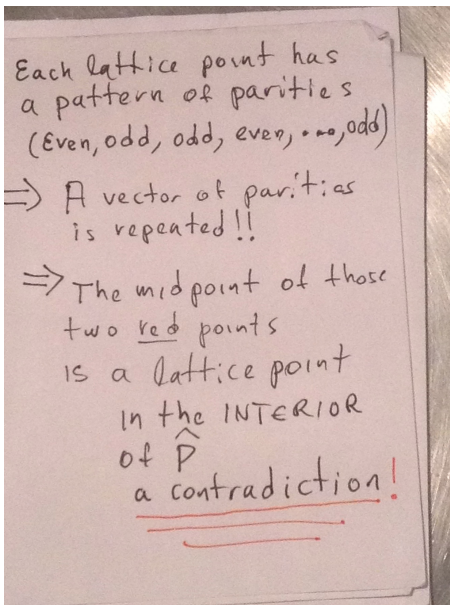 Each lattice point has
a pattern of parities
(Even, odd, odd, even, ..., odd)
⇒ A vector of parities
is repeated!!
⇒ The midpoint of those
two red points
is a lattice point
in the INTERIOR
of P̂
a contradiction!